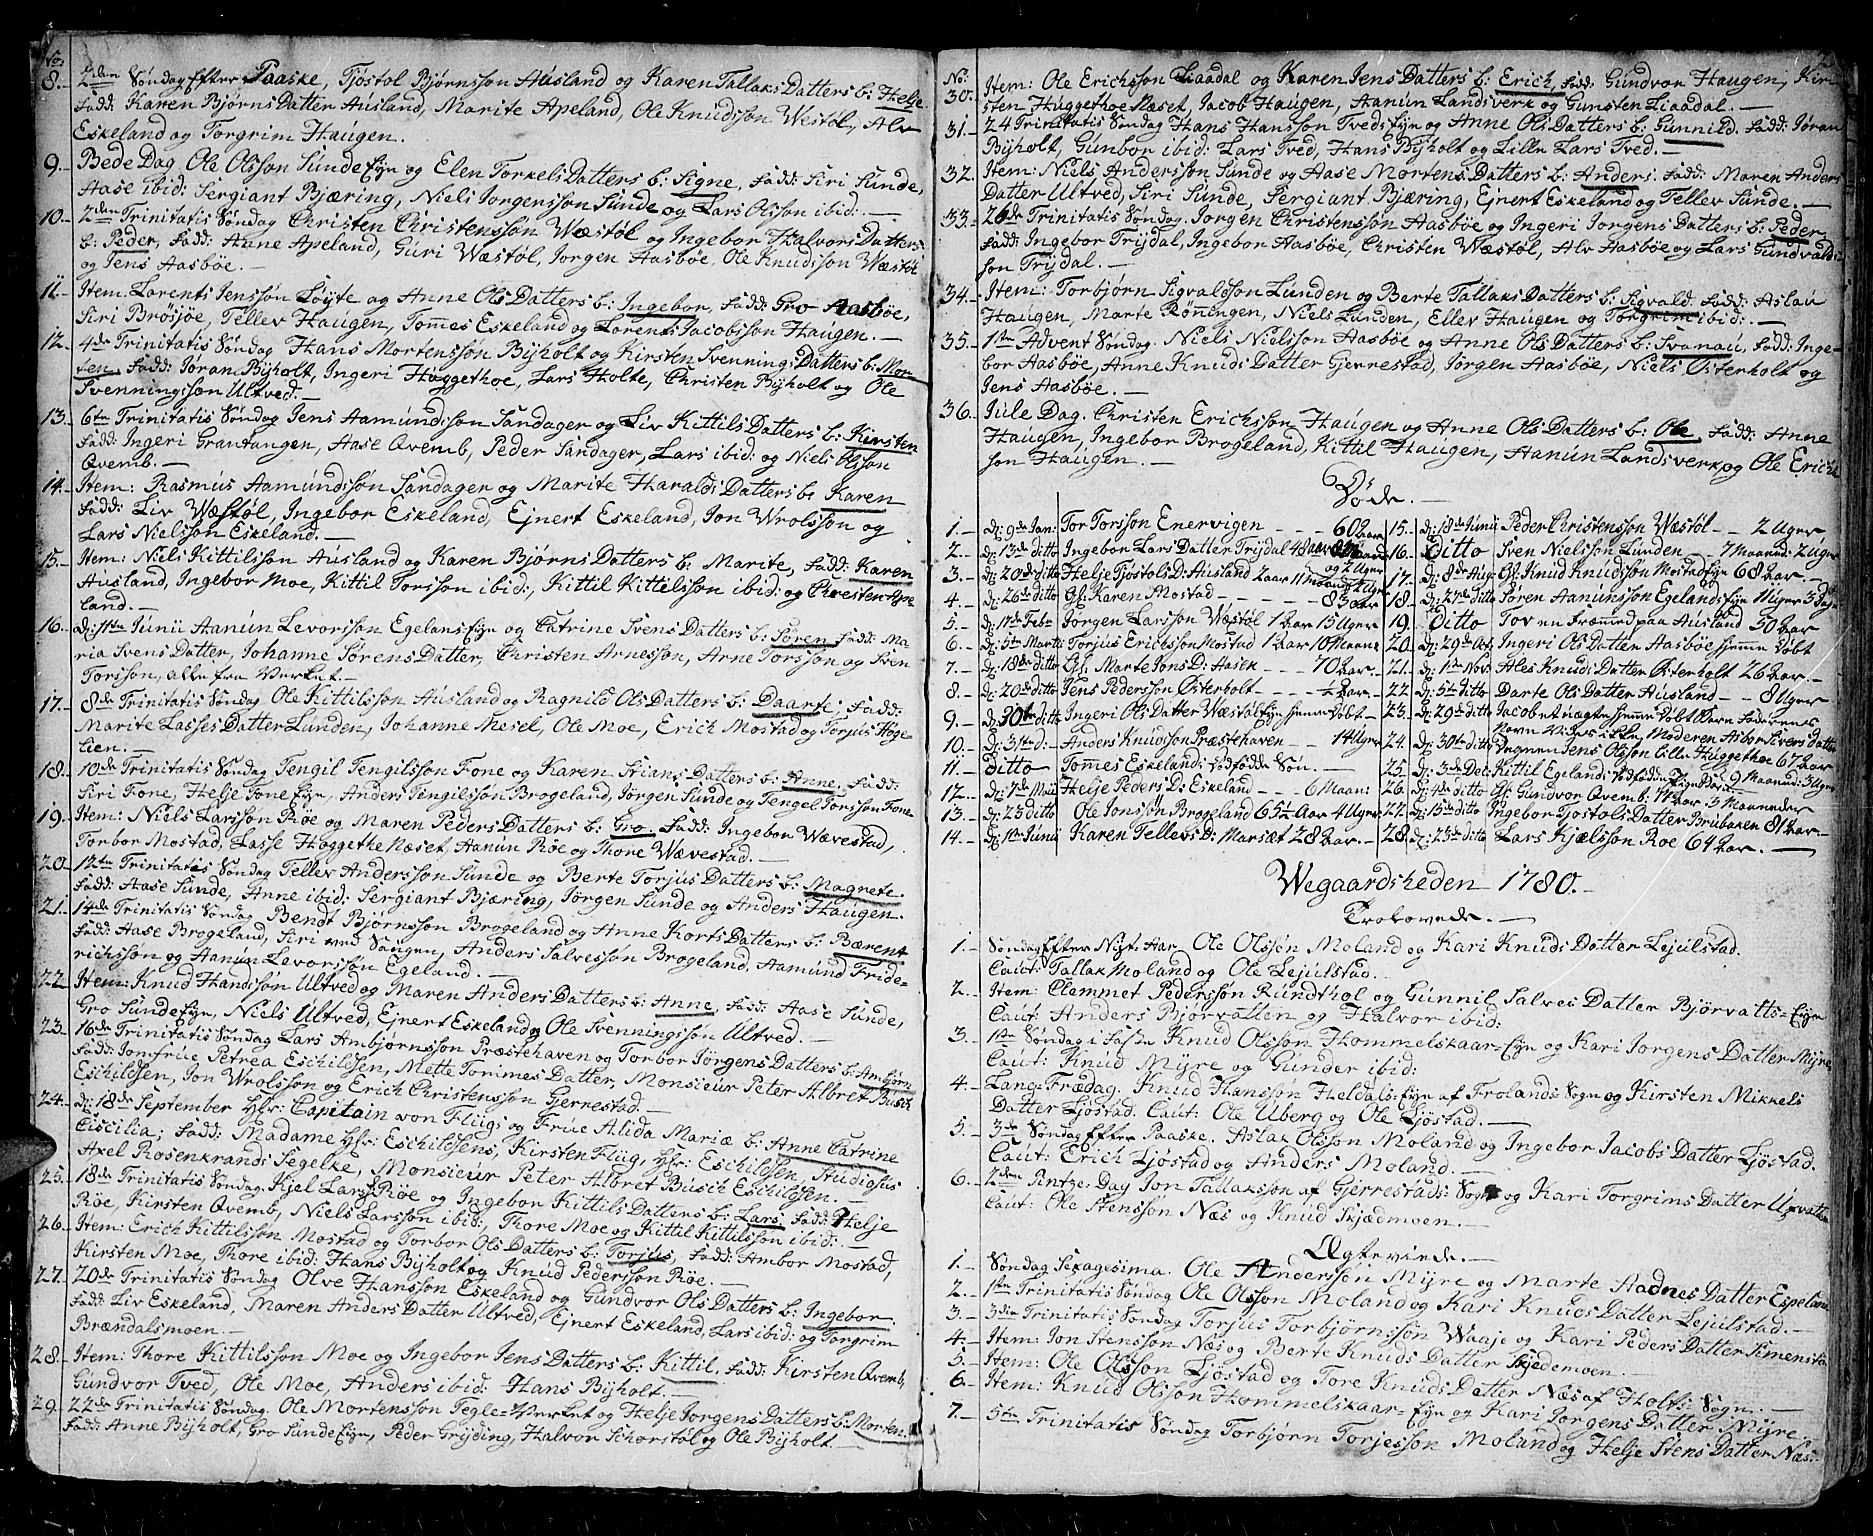 No:
8. 2den Søndag Efter Paaske, Tjøstol Bjørnssøn Ausland og Karen Tallaks Datters b: Helje
fadd: Karen Bjørns Datter Ausland, Marite Apeland, Ole Knudssøn Westøl, Alv
Eskeland og Torgrim Haugen.
9. Bede Dag Ole Olssøn Sunde Eyn og Elen Torkels Datters b: Signe, fadd: Siri Sunde,
Aase ibid: Sergiant Bjæring, Niels Jørgenssøn Sunde og Lars Olssøn ibid:—
10. 2den Trinitatis Søndag Christen Christenssøn Wæstøl og Ingebor Halvors Datters
b: Peder, fadd: Anne Apeland, Guri Wæstøl, Jørgen Aasbøe, Ole Knudssøn Wæstøl
og Jens Aasbøe.—
11. Item Larents Jenssøn Løyte og Anne Ols Datters b: Ingebor, fadd: Gro Aasbøe,
Siri Brøsjøe, Tellev Haugen, Tommes Eskeland og Lorents Jacobssøn Haugen.—
12. 4de Trinitatis Søndag Hans Mortenssøn Bijholt og Kirsten Svennings Datters b: Mor-
ten, fadd: Joran Bijholt, Ingeri Huggethoe, Lars Holte, Christen Bijholt og Ole
Svenningssøn Ultved.—
13. 6te Trinitatis Søndag Jens Aamundssøn Sandager og Liv Kittils Datters b: Kirsten
fadd: Ingeri Grantangen, Aase Qvemb, Peder Sandager, Lars ibid: og Niels Olssøn
Qvemb.—
14. Item: Rasmus Aamundssøn Sandager og Marite Haralds Datters b: Karen
fadd: Liv Wæstøl, Ingebor Eskeland, Ejnert Eskeland, Jon Wrolssøn og
Lars Nielssøn Eskeland.—
15. Item: Niels Kittilssøn Ausland og Karen Bjørns Datters b: Marite, fadd: Karen
Ausland, Ingebor Moe, Kittil Torssøn ibid:, Kittil Kittilssøn ibid: og Christen Ape
land.—
16. d: 11te Junii Aanun Levorssøn Egelans Eyn og Catrine Svens Datters b: Søren fadd: Ma
ria Svens Datter, Johanne Sørens Datter, Christen Arnessøn, Arne Torssøn og Sven
Torssøn, alle fra Verket.—
17. 8de Trinitatis Søndag Ole Kittilssøn Ausland og Ragnild Ols Datters b: Daarte, fadd:
Marite Lasses Datter Lunden, Johanne Mesel, Ole Moe, Erich Mostad og Torjus Høge
lien.—
18. 10de Trinitatis Søndag Tengil Tengilssøn Fone og Karen Stians Datters b: Anne, fadd:
Siri Fone, Helje Fone Eyn, Anders Tengilssøn Brogeland, Jørgen Sunde og Tengel Torssøn Fone
19. Item: Niels Larssøn Røe og Maren Peders Datters b: Gro, fadd: Ingebor Wævestad,
Torbor Mostad, Lasse Huggethe Næset, Aanun Røe og Thore Wævestad.—
20. 12te Trinitatis Søndag Tellev Anderssøn Sunde og Berte Torjus Datters b: Magnete.
fadd: Aase Sunde, Anne ibid: Sergiant Bjæring, Jørgen Sunde og Anders Haugen.
21. 14de Trinitatis Søndag Bendt Bjørnssøn Brogeland og Anne Korts Datters b: Bærent
fadd: Aase Brogeland, Siri ved Saugen, Anders Salvessøn Brogeland, Aamund Fride-
richssøn og Aanun Levorssøn Egeland.—
22. Item: Knud Handssøn Ultved og Maren Anders Datters b: Anne, fadd: Aase Sunde,
Gro Sunde Eyn, Niels Ultved, Ejnert Eskeland og Ole Svenningssøn Ultved.—
23. 16de Trinitatis Søndag Lars Ambjørnssøn Præstehaven og Torbor Jørgens Datters b: Ambjørn
fadd: Jomfrue Petrea Eschildsen, Mette Tommes Datter, Monsieur Peter Albret Busch
Eschildsen, Jon Wrolssøn og Erich Christenssøn Gjerrestad.—
24. d: 18de September Hr: Capitain von Flug: og Frue Alida Mariæ b: Anne Catrine
Ciscilia; fadd: Madame Hr: Eschildsens, Kirsten Flug, Hr: Eschildsen, Studiosus
Axel Rosenkrands Segelke, Monsieur Peter Albret Busch Eschildsen.
25. 18de Trinitatis Søndag Kjel Larssøn Røe og Ingebor Kittils Datters b: Lars, fadd: Helje
Røe, Kirsten Qvemb, Niels Larssøn ibid:, Thore Moe og Kittil Kittilssøn ibid:—
26. Item: Erich Kittilssøn Mostad og Torbor Ols Datters b: Torjus, fadd: Ambor Mostad,
Kirsten Moe, Thore ibid: Hans Bijholt og Knud Pederssøn Røe.—
27. 20de Trinitatis Søndag Olve Hanssøn Eskeland og Gundvor Ols Datters b: Ingebor
fadd: Liv Eskeland, Maren Anders Datter Ultved, Ejnert Eskeland, Lars ibid: og Torgrim
Brændalsmoen.—
28. Item: Thore Kittilssøn Moe og Ingebor Jens Datters b: Kittil, fadd: Kirsten Qvemb,
Gundvor Tved, Ole Moe, Anders ibid: Hans Bijholt.—
29. 22de Trinitatis Søndag. Ole Mortenssøn Tegle-Værket og Helje Jørgens Datters b: Morten
fadd: Anne Bijholt, Gro Sunde Eyn, Peder Grijding, Halvor Schorstøl og Ole Bijholt.—
No:
30. Item: Ole Erichssøn Liaadal og Karen Jens Datters b: Erich, fadd: Gundvor Haugen, Kir
sten Huggethoe Næset, Jacob Haugen, Aanun Landsverk og Gunsten Liaadal.—
31. 24 Trinitatis Søndag Hans Hanssøn Tveds Eyn og Anne Ols Datters b: Gunnild. fadd: Joran
Bijholt, Gunbor ibid: Lars Tved, Hans Bijholt og Lille Lars Tved.—
32. Item: Niels Anderssøn Sunde og Aase Mortens Datters b: Anders, fadd: Maren Anders
Datter Ultved, Siri Sunde, Sergiant Bjæring, Ejnert Eskeland og Tellev Sunde.—
33. 26de Trinitatis Søndag. Jørgen Christenssøn Aasbøe og Ingeri Jørgens Datters b: Peder
fadd: Ingebor Trijdal, Ingebor Aasbøe, Christen Wæstøl, Alv Aasbøe og Lars Gundvalds
søn Trijdal.—
34. Item: Torbjørn Sigvaldsøn Lunden og Berte Tallaks Datters b: Sigvald. fadd: Aslau
Haugen, Marte Rønningen, Niels Lunden, Ellev Haugen og Torgrim ibid:—
35. 1ste Advent Søndag. Niels Nielssøn Aasbøe og Anne Ols Datters b: Svanau, fadd: Inge-
bor Aasbøe, Anne Knuds Datter Gjerrestad, Jørgen Aasbøe, Niels Østerholt og
Jens Aasbøe.—
36. Jule Dag. Christen Erichssøn Haugen og Anne Ols Datters b: Ole, fadd: Anne
Haugen, Ingebor Brogeland, Kittil Haugen, Aanun Landsverk og Ole Erichs
søn Haugen.—
Døde.—
1. d: 9de Jan: Tor Torssøn Enervigen — 60 Aar
2. d: 13de ditto Ingebor Lars Datter Trijdal 48 Aar og 2 Uger
3. d: 20de ditto Helje Tjøstols D: Ausland 2 Aar 11 Maan: 2 Uger
4. d: 26de ditto Gl: Karen Mostad — 83 Aar
5. d: 17de Febr Jørgen Larssøn Wæstøl 1 Aar 15 Uger
6. d: 5te Marti Torjus Erichssøn Mostad 1 Aar 10 Maan:
7. d: 18de ditto Gl: Marte Jons D: Aasen — 70 Aar.—
8. d: 20de ditto Jens Pederssøn Østerholt — ½ Aar.—
9. d: 30te ditto Ingeri Ols Datter Wæstøl Eyn hjemme Døbt.—
10. d: 31te d:— Anders Knudssøn Præstehaven — 14 Uger
11. Ditto Tommes Eskelands dødfødde Søn.—
12. d: 7de Maii Helje Peders D: Eskeland — 6 Maan:
13. d: 23 ditto Ole Jonssøn Brogeland 65½ Aar 4 Uger
14. d: 1ste Junii Karen Tellevs D: Marsæt 28 Aar.—
15. d: 18de Junii Peder Christenssøn Wæstøl — 2 Uger
16. Ditto Sven Nielssøn Lunden — 7 Maan: 2 Uger
17. d: 8de Aug: Gl: Knud Knudssøn Mostad Eyn 68 Aar.—
18. d: 27de ditto Søren Aanunssøn Egelands Eyn 11 Uger 3 Dage
19. Ditto Tov en Fræmmed paa Ausland 50 Aar
20. d: 29de Oct: Ingeri Ols Datter Aasbøe hjemme Døbt
21. d: 1ste Nov: Ales Knuds Datter Østerholt 26 Aar.—
22. d: 5te ditto Darte Ols Datter Ausland — 8 Uger
23. d: 29de ditto Jacob et uægte hjemme Døbt Barn Faderens
Navn vides ikke, Moderen Aibor Sivers Datter
24. d: 30te ditto Jens Olssøn Lille Huggethoe 67 Aar
25. d: 3de Dec: Kittil Egelands dødfødde
26. d: 4de ditto Gl: Gundvor Qvemb: 77 Aar 3 Maaneder
27. d: 15de ditto Ingebor Tjøstols Datter Brubaken 81 Aar.—
28. d: 23de ditto Lars Kjælssøn Roe 64 Aar.—
Wegaardsheden 1780.—
Trolovede.—
1. Søndag Efter Nijt-Aar Ole Olssøn Moland og Kari Knuds Datter Lejulstad.
Caut: Tallak Moland og Ole Lejulstad.
2. Item: Clemmet Pederssøn Rundthol og Gunnil Salves Datter Bjørvatts-Eyn
Caut: Anders Bjørvatten og Halvor ibid:
3. 1ste Søndag i Faste Knud Olssøn Hommelskaar-Eyn og Kari Jørgens Datter Mijre
Caut: Knud Mijre og Gunder ibid:
4. Lang-Frædag. Knud Hanssøn Heldals-Eyn af Frolands Sogn og Kirsten Mikkels
Datter Ljøstad. Caut: Ole Uberg og Ole Ljøstad.—
5. 3de Søndag Efter Paaske. Aslak Olssøn Moland og Ingebor Jacobs Datter Ljøstad.
Caut: Erich Ljøstad og Anders Moland.—
6. 2den Pintze-Dag Jon Tallakssøn af Gjerrestads: Sogn og Kari Torgrims Datter Upvatten
Caut: Ole Stenssøn Næs og Knud Skjædmoen.—
Ægteviede.—
1. Søndag Sexagesima. Ole Anderssøn Mijre og Marte Aadnes Datter Espeland
2. 1ste Trinitatis Søndag Ole Olssøn Moland og Kari Knuds Datter Lejulstad.
3. 3die Trinitatis Søndag Torjus Torbjørnssøn Waaje og Kari Peders Datter Simenstad
4. Item: Jon Stenssøn Næs og Berte Knuds Datter Skjedemoen.—
5. Item: Ole Olssøn Ljøstad og Tore Knuds Datter Næs af Holts: Sogn.—
6. Item: Knud Olssøn Hommelskaar-Eyn og Kari Jørgens Datter Mijre.—
7. 5te Trinitatis Søndag Torbjørn Torjessøn Moland og Helje Stens Datter Næs: